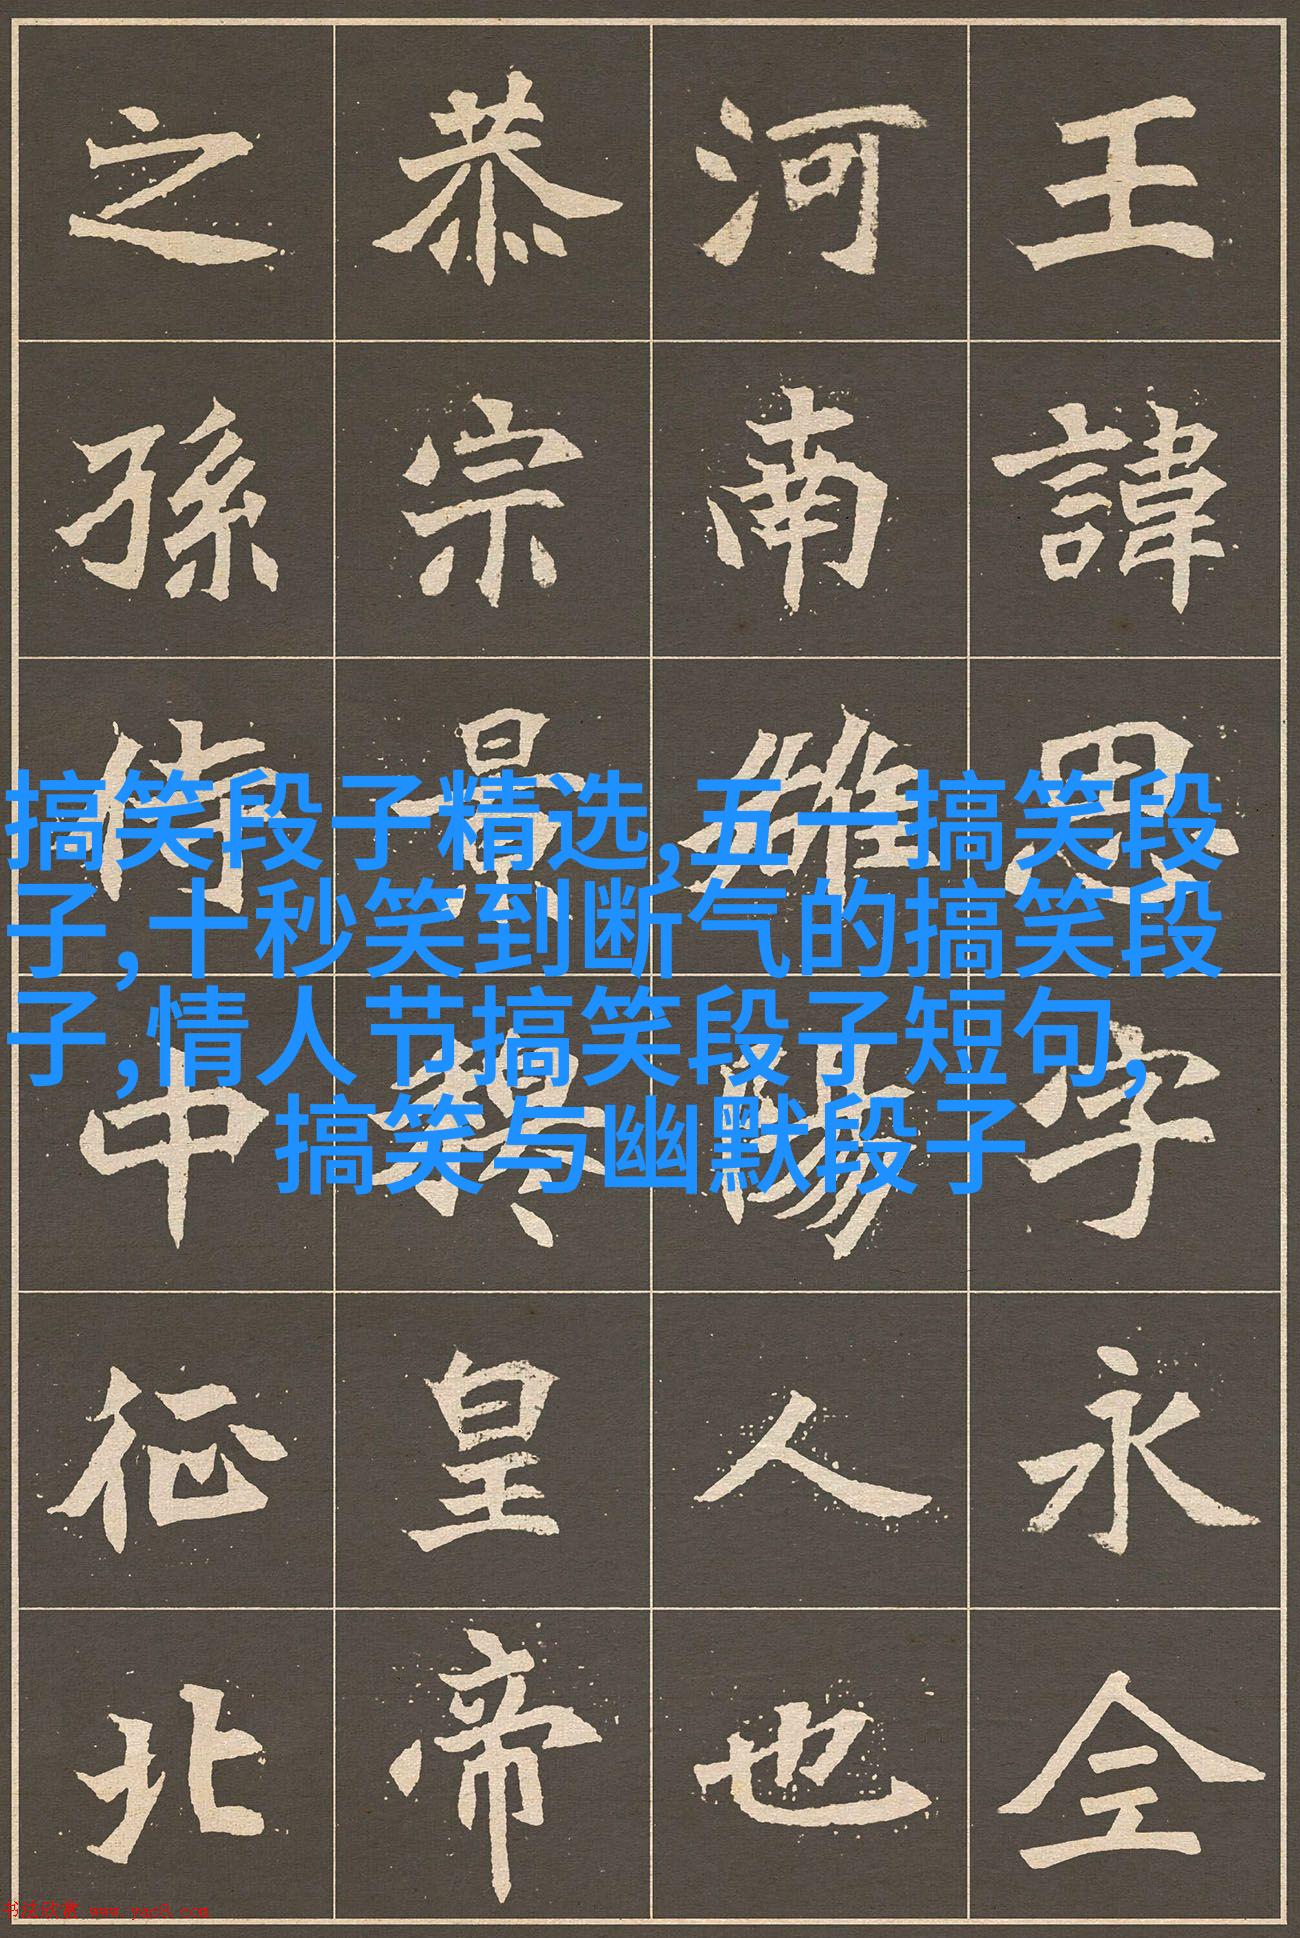 王諱思字永全
河南雒陽人也
恭宗景穆皇帝
之孫侍中征北
搞笑段子精选,五一搞笑段
子,十秒笑到断气的搞笑段
子,情人节搞笑段子短句,
搞笑与幽默段子
书法欣赏 www.yac8.com